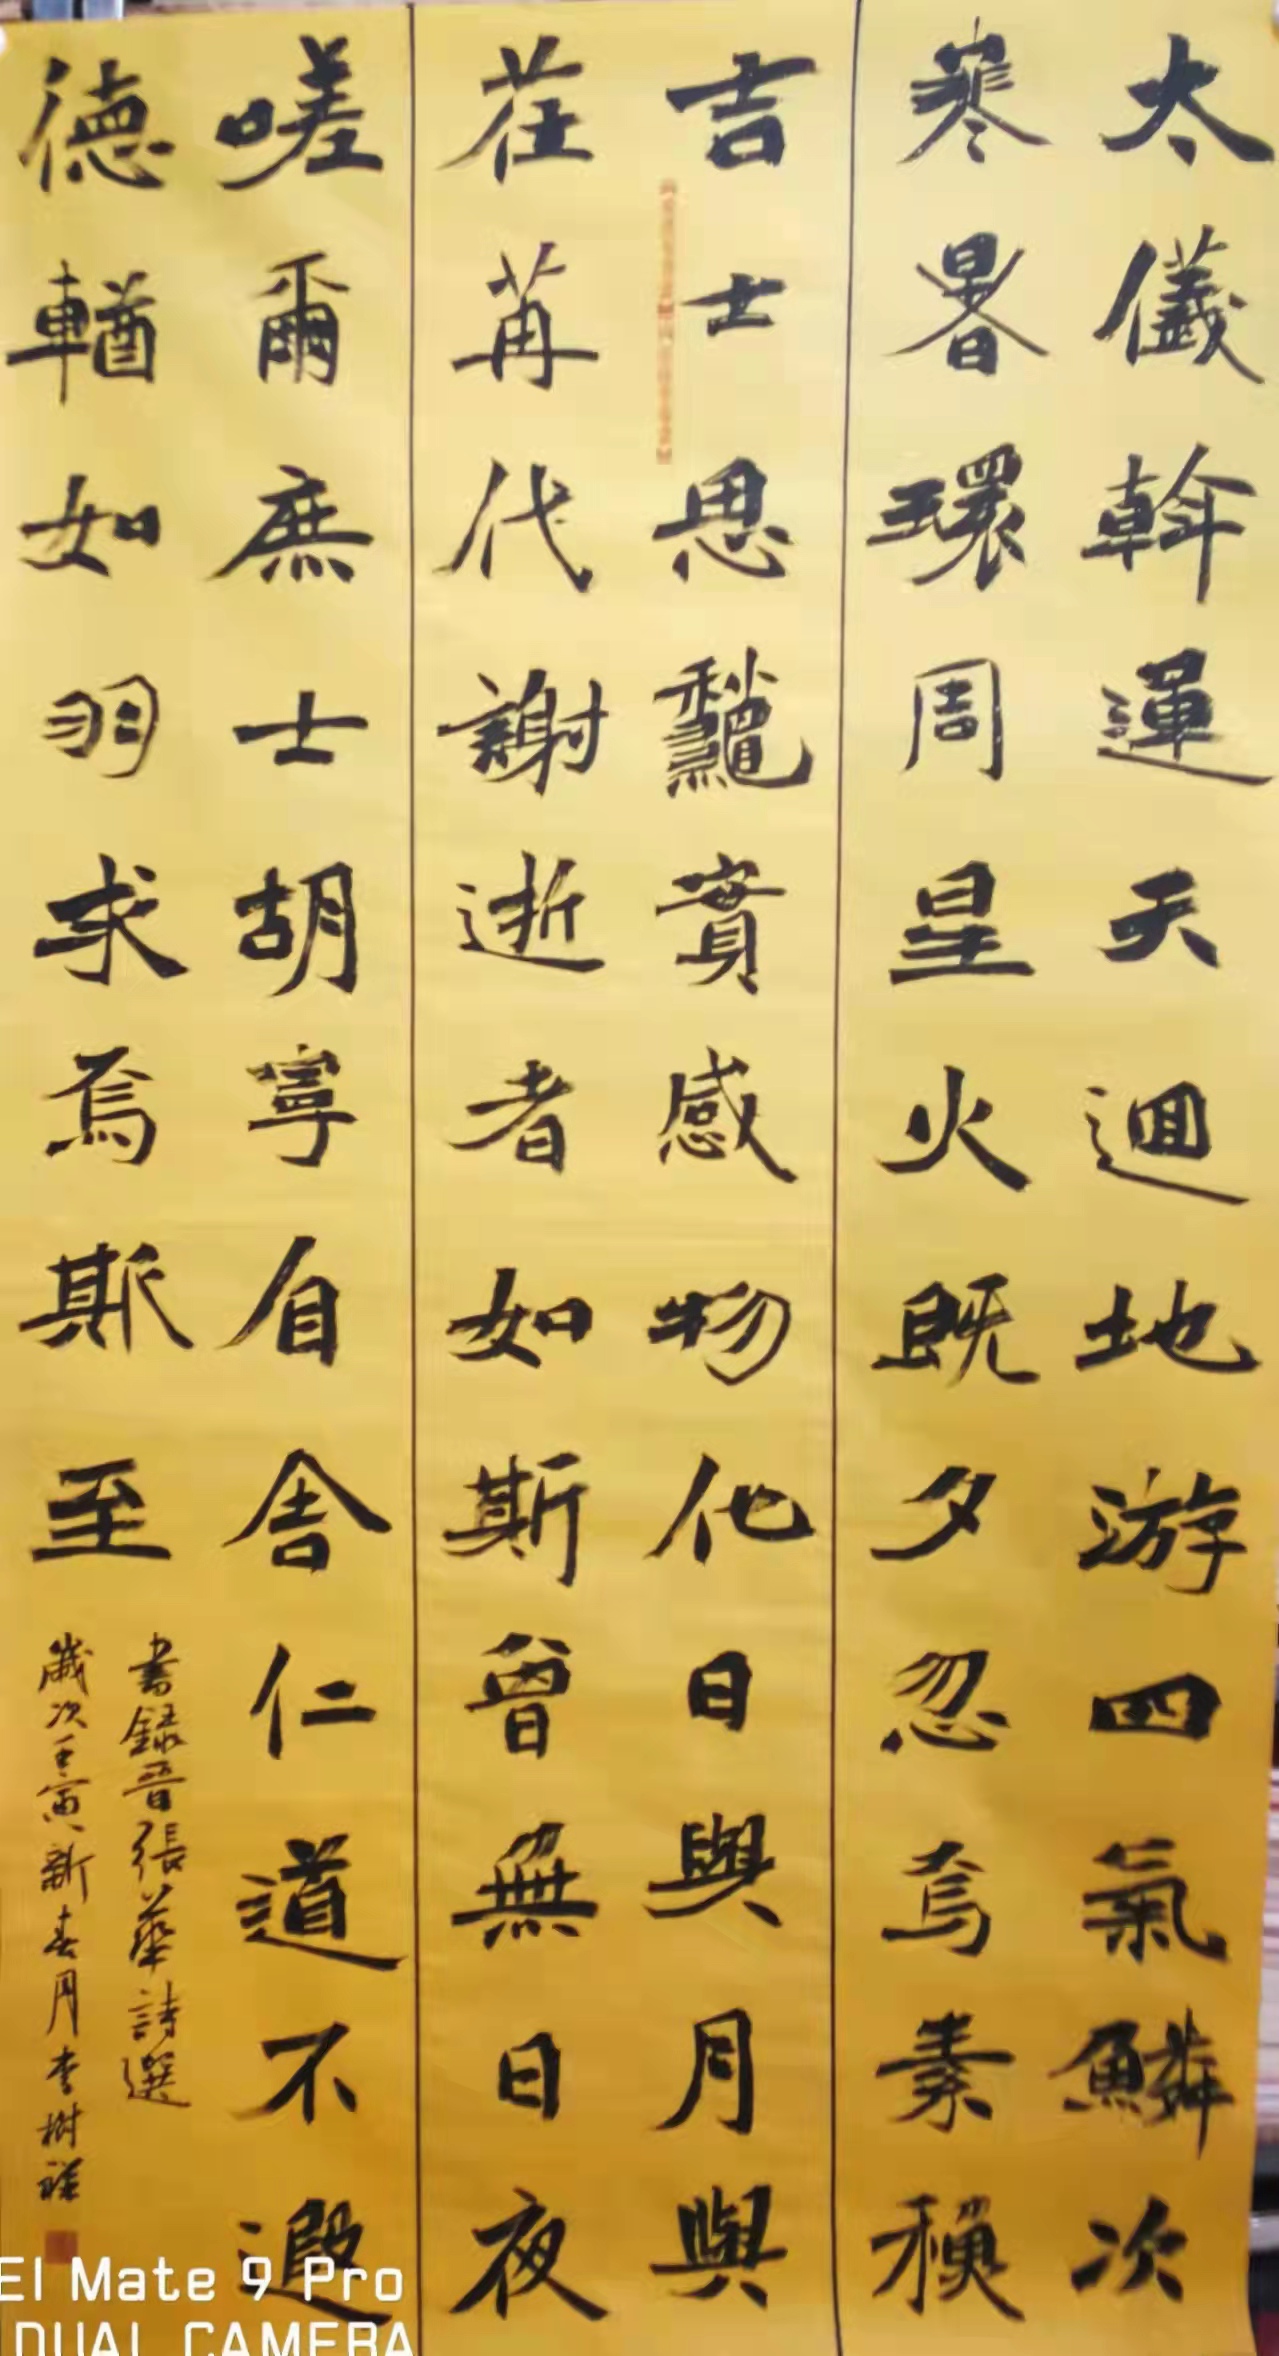 太儀斡運天迴地游四氣鱗次
寒暑環周星火既夕忽焉素
吉士思龝實感物化日與月與
荏苒代謝逝者如斯曾無日夜
嗟爾庶士胡寧自舍仁道不遐
德輶如羽求焉斯至
書録晉張華詩選
歲次壬寅新春月李樹祥
EI Mate 9 Pro
DUAL CAMERA